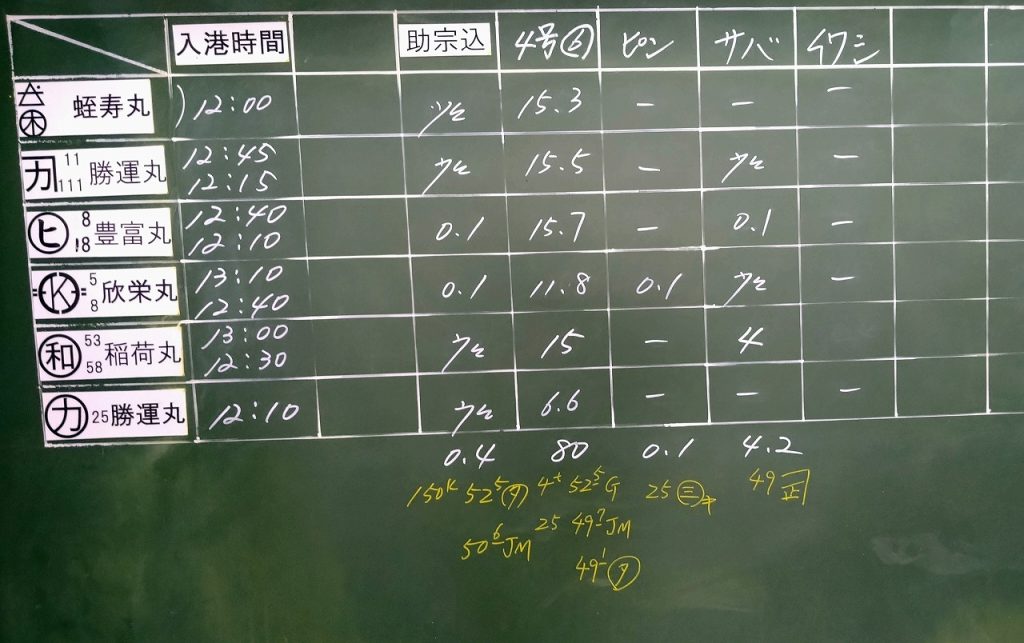 入港時間 助宗込 4号⑥ ピン サバ イワシ
木 蛭寿丸 12:00 少々 15.3 — — —
カ 11 111 勝運丸 12:45 12:15 少々 15.5 — 少々 —
ヒ 8 18 豊富丸 12:40 12:10 0.1 15.7 — 0.1 —
K 5 8 欣栄丸 13:10 12:40 0.1 11.8 0.1 少々 —
和 53 58 稲荷丸 13:00 12:30 少々 15 — 4
カ 25 勝運丸 12:10 少々 6.6 — — —
0.4 80 0.1 4.2
150K 525 タ 4t 525 G 25 三 49 正
506 JM 25 497 JM
491 タ